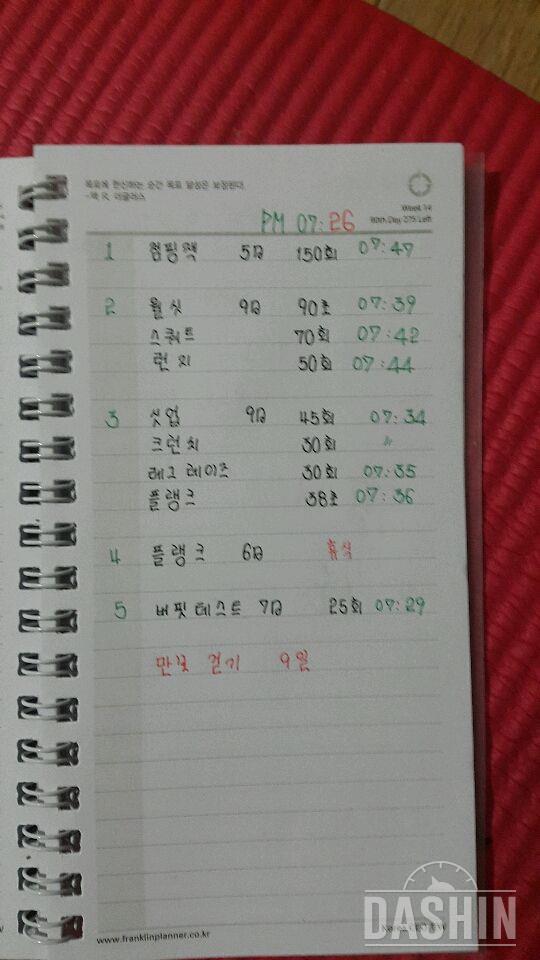 목표에 헌신하는 순간 목표 달성은 보장된다.
-맥 R. 더글러스
Week 14
90th Day 275 Left
PM 07:26
1 점핑잭 5日 150회 07:47
2 월싯 9日 90초 07:39
스쿼트 70회 07:42
런지 50회 07:44
3 싯업 9日 45회 07:34
크런치 30회 〃
레그 레이즈 30회 07:35
플랭크 38초 07:36
4 플랭크 6日 휴식
5 버핏테스트 7日 25회 07:29
만보 걷기 9일
www.franklinplanner.co.kr
DASHIN